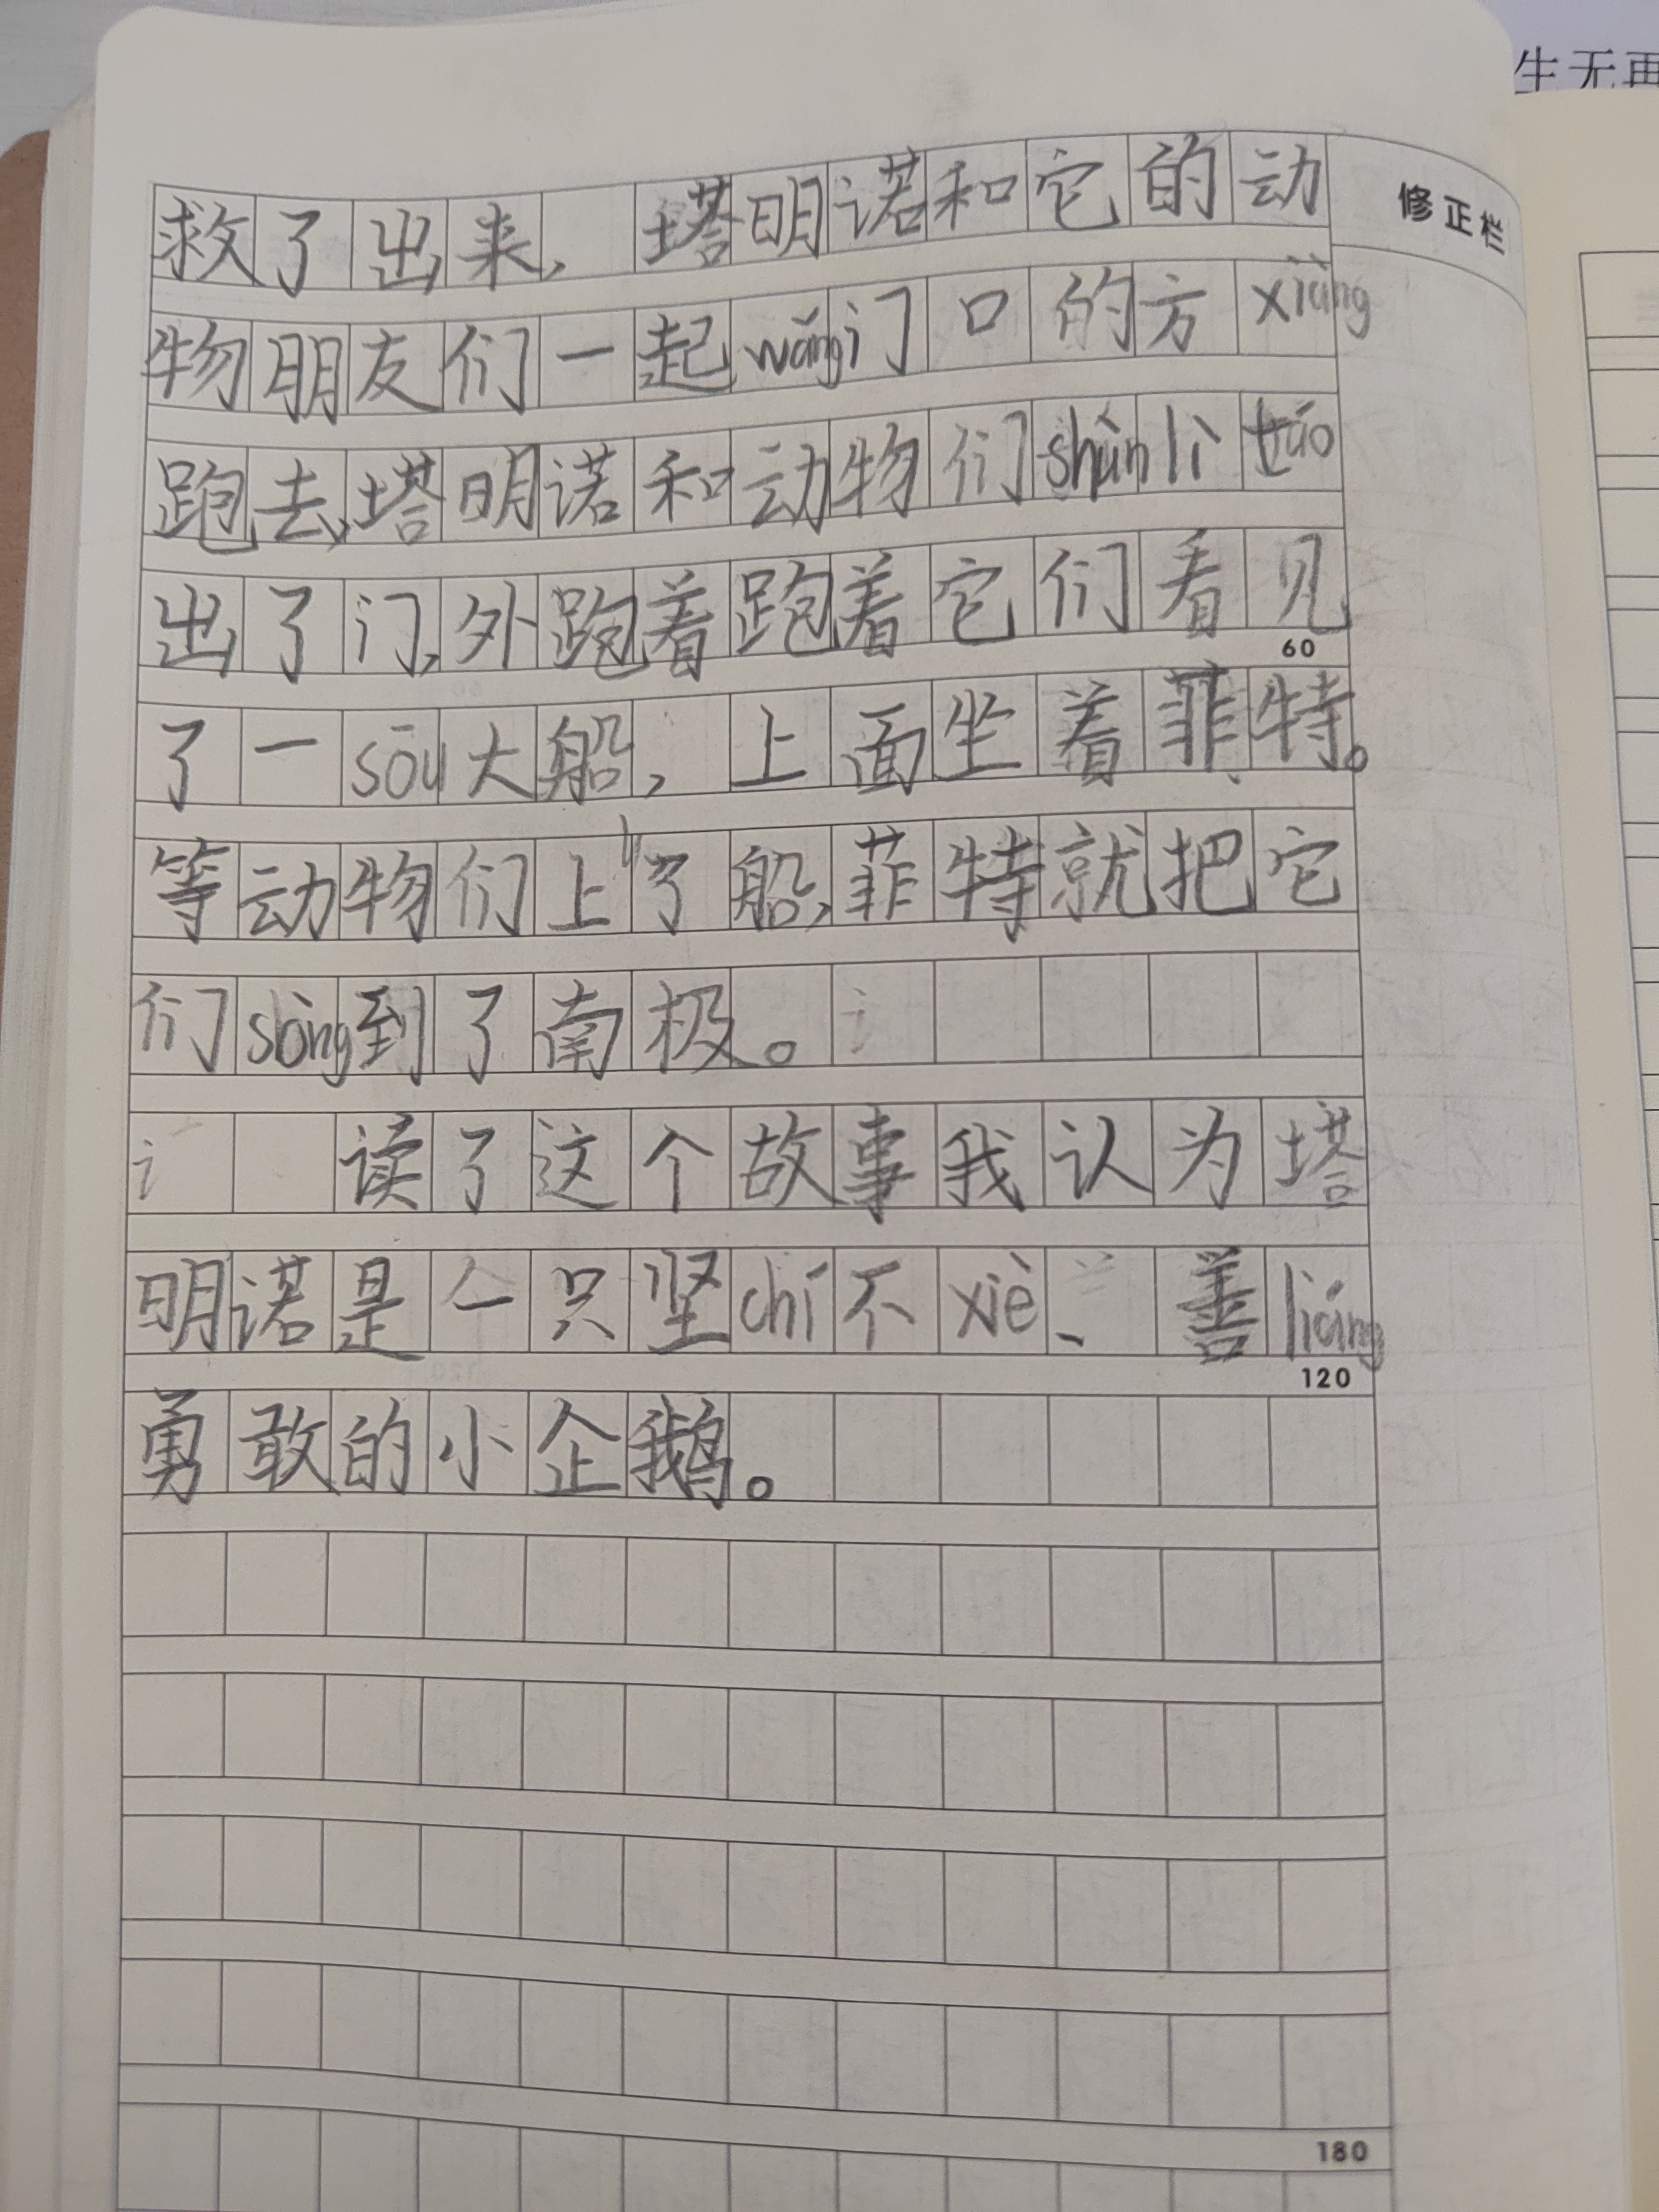 生无再
修正栏
救了出来，塔明诺和它的动
物朋友们一起wǎng门口的方xiàng
跑去，塔明诺和动物们shùn lì táo
出了门，外跑着跑着它们看见
60
了一sōu大船，上面坐着菲特。
等动物们上了船，菲特就把它
们sòng到了南极。
读了这个故事我认为塔
明诺是一只坚chí不xiè、善liáng
120
勇敢的小企鹅。
180